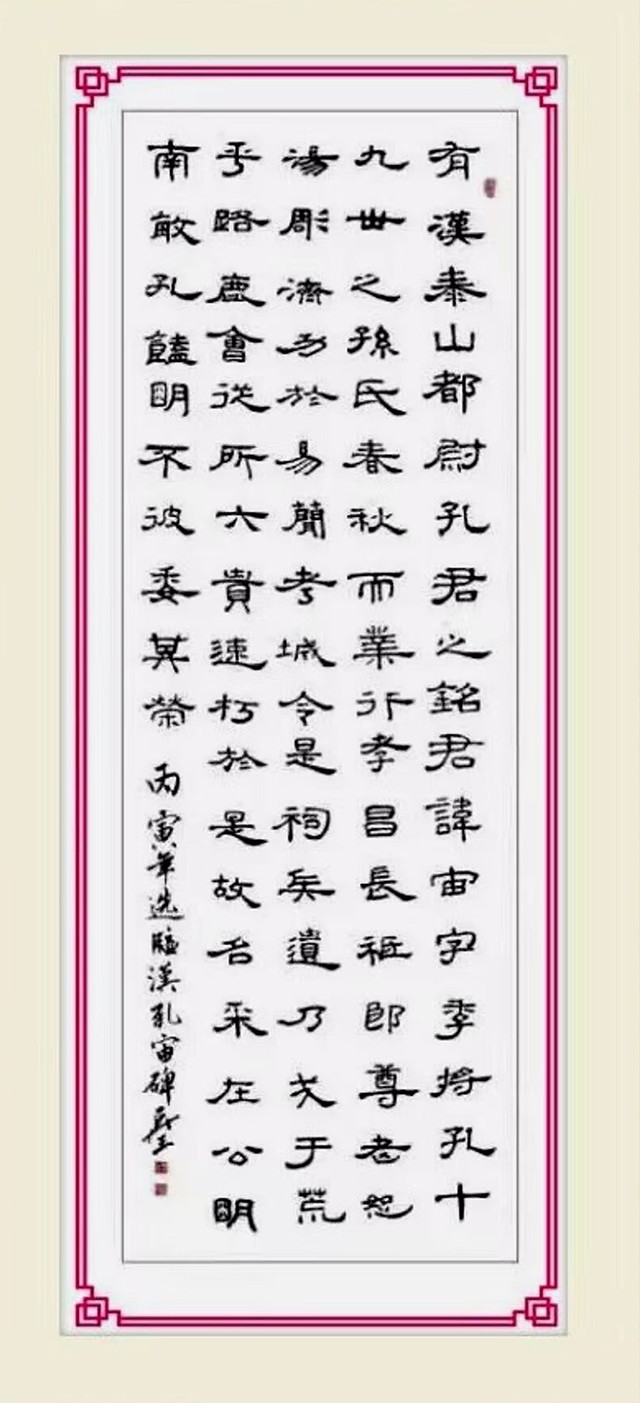 有漢泰山都尉孔君之銘君諱宙字季将孔十
九世之孫氏春秋而業行孝昌長祗郎尊老恕
湯彫濟於易簡考城令是祠矣遺乃于荒
乎路鹿會從所六貴速朽於是故名采在公明
南敏孔饁明不彼委其榮
丙寅年选臨漢孔宙碑